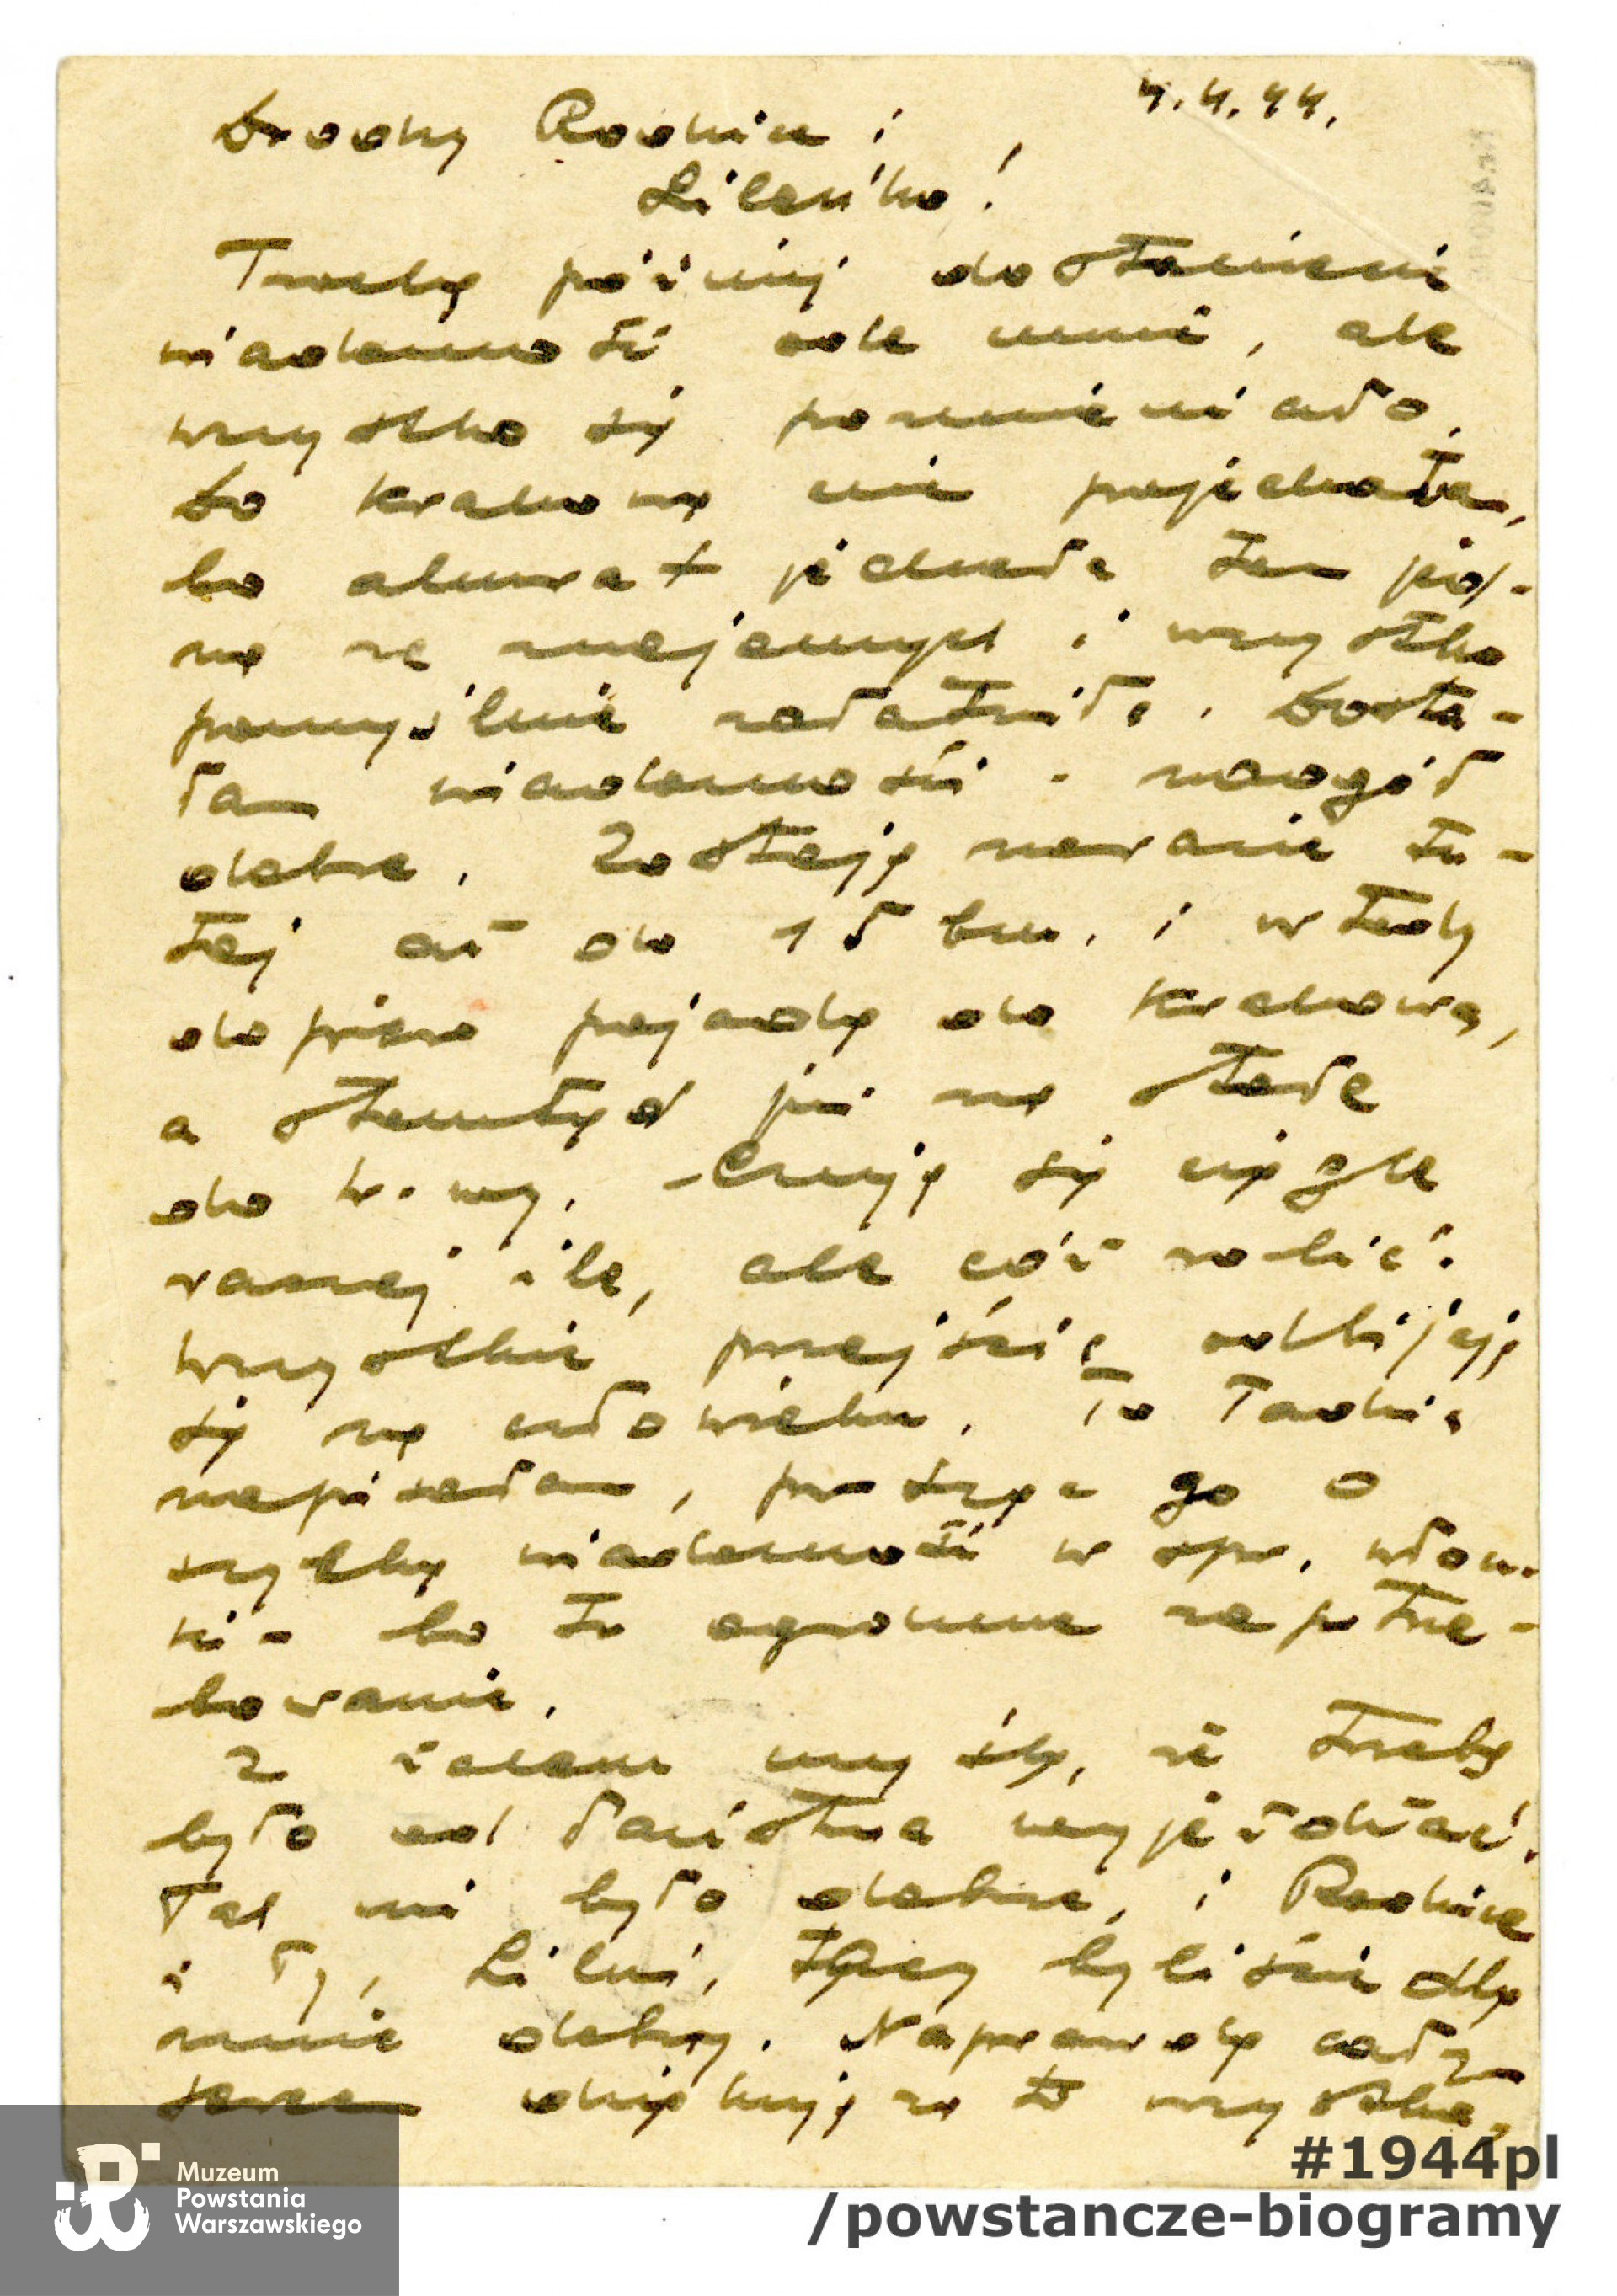 4.4.44.
Drodzy Rodzice i
Lileńko!
Trochę później dostaniecie
wiadomość ode mnie, ale
wszystko się pozmieniało.
Do Krakowa nie pojechałam,
bo akurat jechała tam jed-
na ze znajomych i wszystko
pomyślnie załatwiła. Dosta-
łam wiadomości - naogół
dobre. Zostaję narazie tu-
taj aż do 15 bm. i wtedy
dopiero pojadę do Krakowa,
a stamtąd już na stałe
do W-wy. Czuję się ciągle
raczej źle, ale cóż robić.
Wszystkie przejścia odbijają
się na człowieku. Do Tadzia
napisałam, prosząc go o
szybką wiadomość w spr.
- bo to ogromne zapotrze-
bowanie.
Z żalem myślę, że trzeba
było od Państwa wyjeżdżać.
Tak mi było dobrze, i Rodzice
i Ty, Liluś, tacy byliście dla
mnie dobrzy. Naprawdę całym
sercem dziękuję za to wszystko,
Muzeum
Powstania
Warszawskiego
#1944pl
/powstancze-biogramy